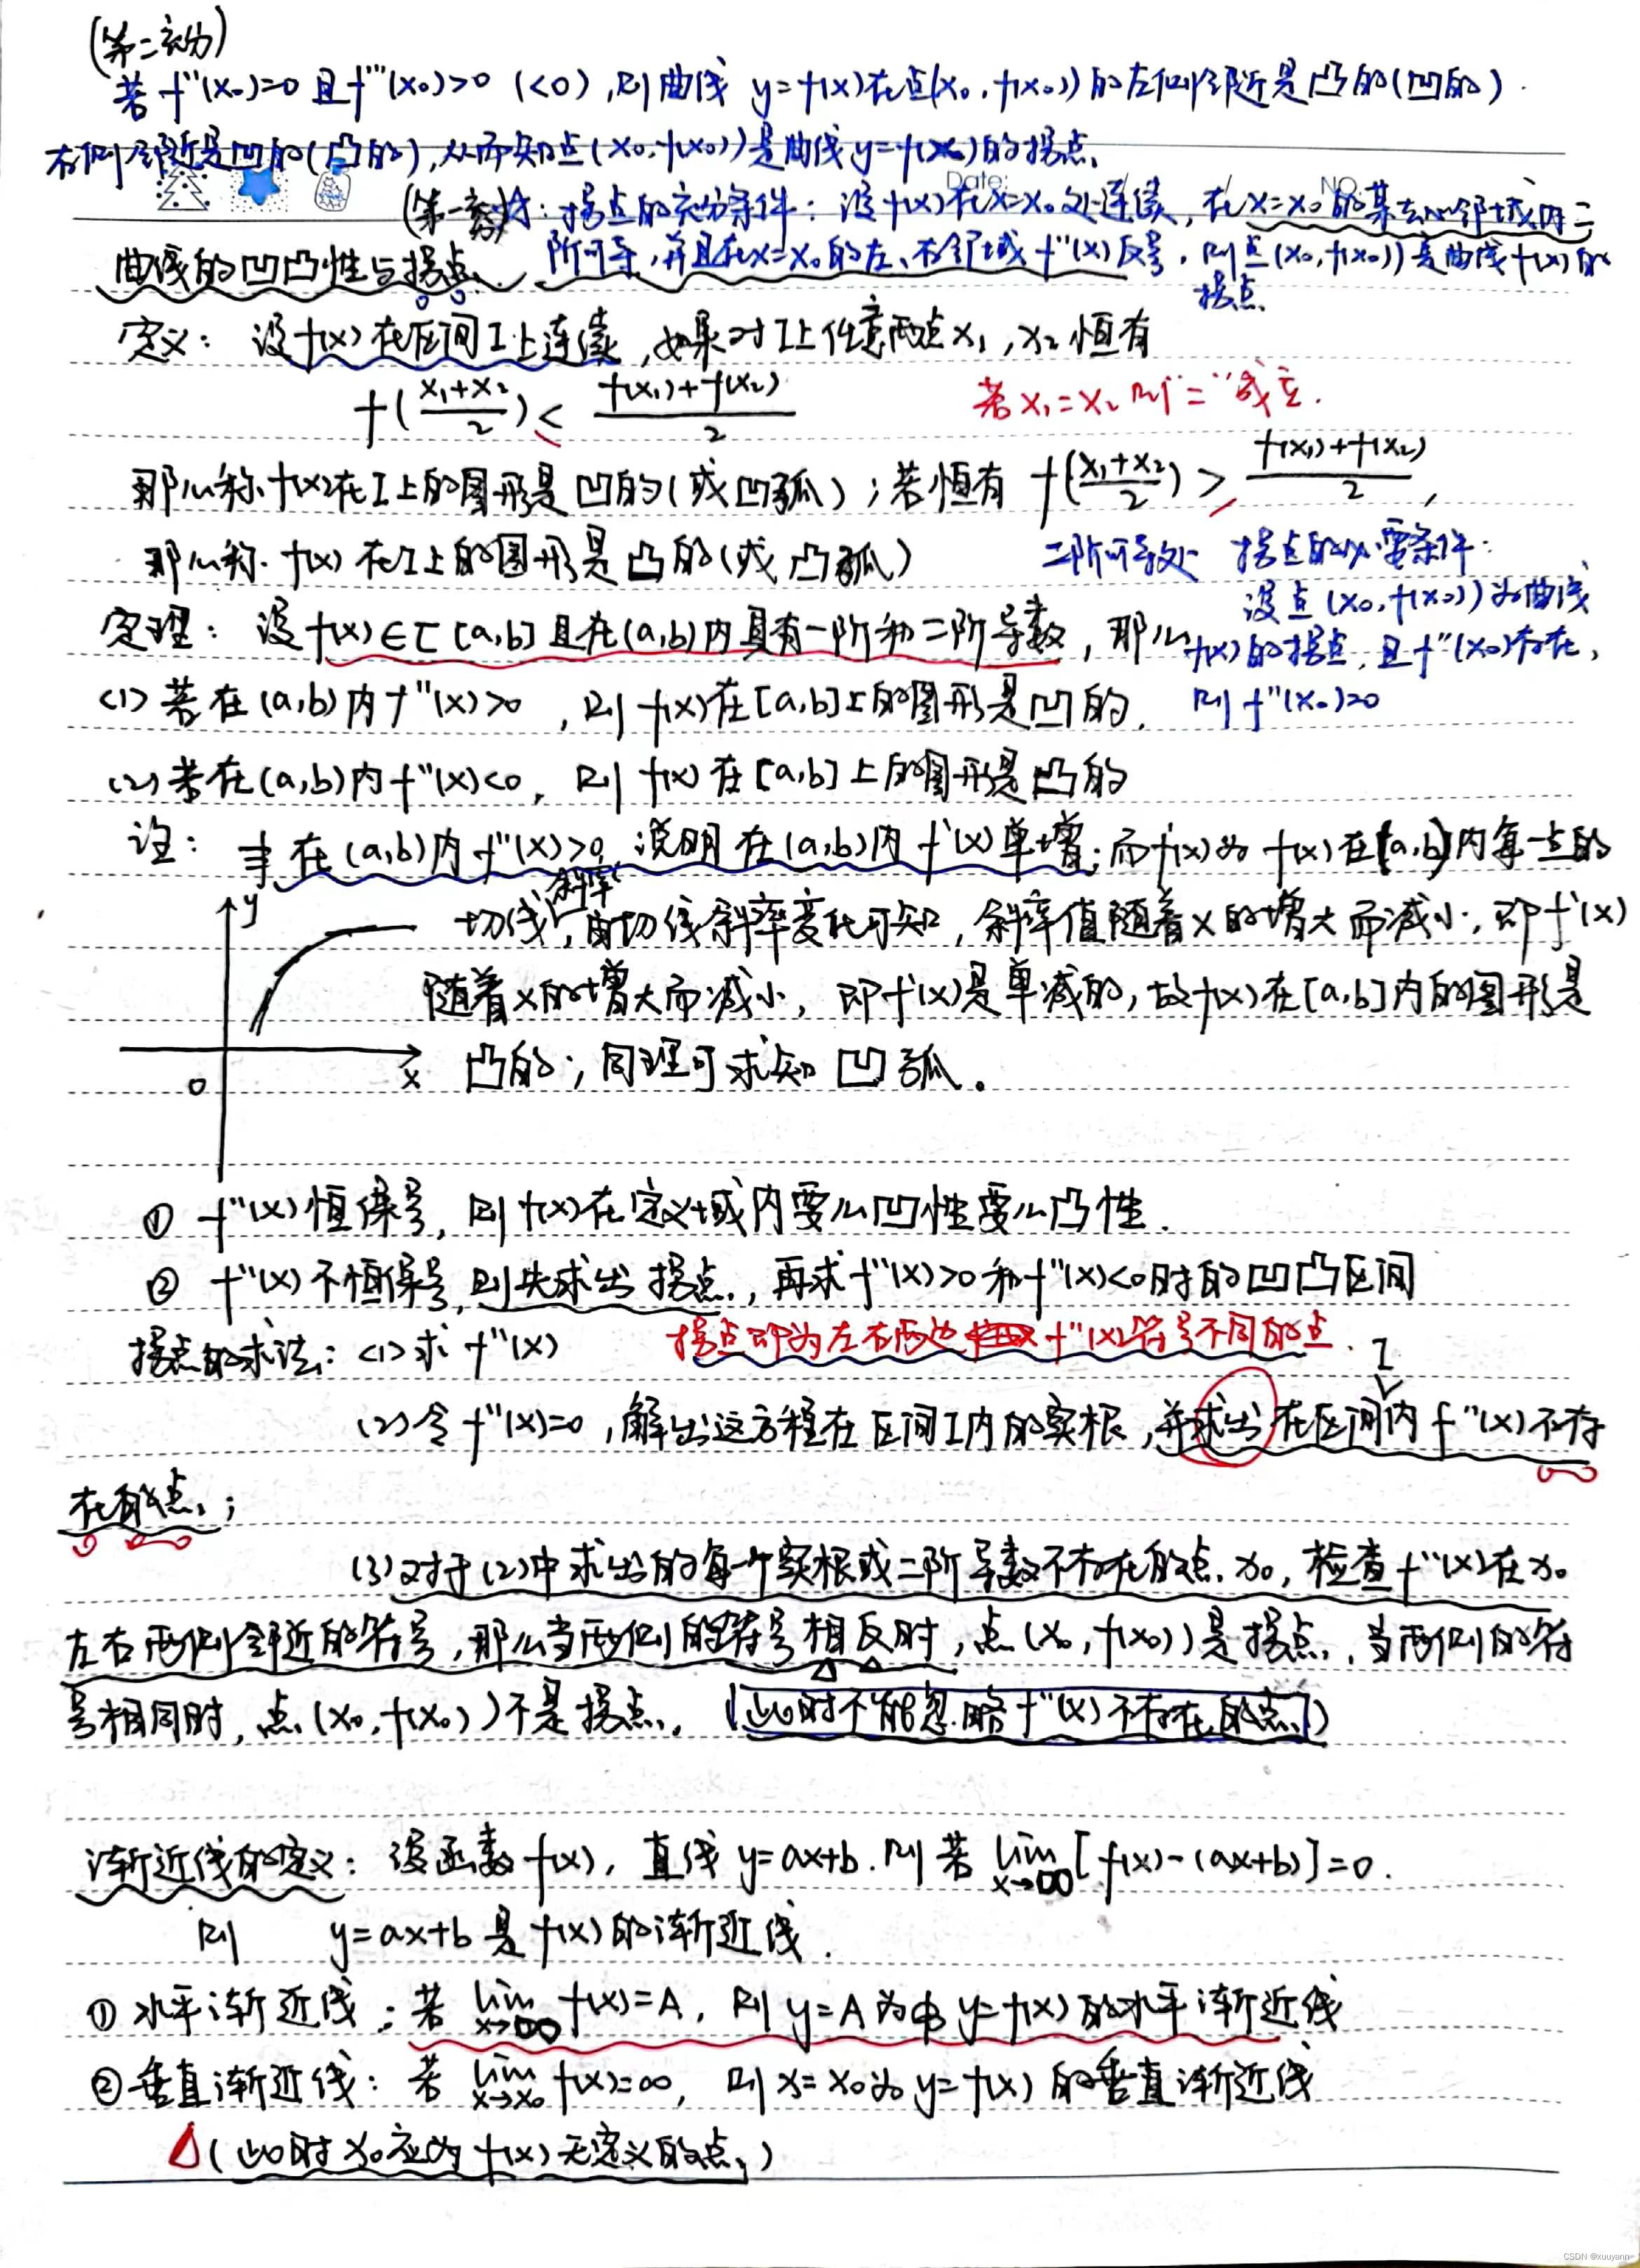 (第二充分)
若f''(x₀)=0 且f'''(x₀)>0 (<0),则曲线 y=f(x)在点(x₀,f(x₀))的左侧邻近是凸的(凹的).
右侧邻近是凹的(凸的),从而知点(x₀,f(x₀))是曲线y=f(x)的拐点.
Date: / / NO.
(第一充分) : 拐点的充分条件: 设f(x)在x=x₀处连续,在x=x₀的某去心邻域内二
阶可导,并且在x=x₀的左、右邻域f''(x)反号,则点(x₀,f(x₀))是曲线f(x)的
拐点.
曲线的凹凸性与拐点.
定义: 设f(x)在区间I上连续,如果对I上任意两点x₁,x₂恒有
f((x₁+x₂)/2) < (f(x₁)+f(x₂))/2
若x₁=x₂则"="成立.
那么称f(x)在I上的图形是凹的(或凹弧);若恒有 f((x₁+x₂)/2) > (f(x₁)+f(x₂))/2,
那么称f(x)在I上的图形是凸的(或凸弧)
二阶可导处 拐点的必要条件:
设点(x₀,f(x₀))为曲线
f(x)的拐点,且f''(x₀)存在,
则f''(x₀)=0
定理: 设f(x)∈C[a,b]且在(a,b)内具有一阶和二阶导数,那么
(1) 若在(a,b)内f''(x)>0,则f(x)在[a,b]上的图形是凹的.
(2) 若在(a,b)内f''(x)<0,则f(x)在[a,b]上的图形是凸的
注: 若在(a,b)内f''(x)>0,说明在(a,b)内f'(x)单增;而f'(x)为f(x)在(a,b)内每一点的
切线斜率,由切线斜率变化可知,斜率值随着x的增大而减小,即f'(x)
随着x的增大而减小,即f'(x)是单减的,故f(x)在[a,b]内的图形是
凸的;同理可求知凹弧.
y
x
0
① f''(x)恒保号,则f(x)在定义域内要么凹性要么凸性.
② f''(x)不恒保号,则先求出拐点,再求f''(x)>0和f''(x)<0时的凹凸区间
拐点的求法: (1)求f''(x)
拐点即为左右两边f''(x)符号不同的点.
(2)令f''(x)=0,解出这方程在区间I内的实根,并求出在区间I内f''(x)不存
在的点;
(3)对于(2)中求出的每一个实根或二阶导数不存在的点x₀,检查f''(x)在x₀
左右两侧邻近的符号,那么当两侧的符号相反时,点(x₀,f(x₀))是拐点,当两侧的符
号相同时,点(x₀,f(x₀))不是拐点. (此时不能忽略f''(x)不存在的点)
渐近线的定义: 设函数f(x),直线y=ax+b.则若 lim x→∞ [f(x)-(ax+b)]=0.
则 y=ax+b是f(x)的渐近线.
①水平渐近线: 若 lim x→∞ f(x)=A,则y=A为y=f(x)的水平渐近线
②垂直渐近线: 若 lim x→x₀ f(x)=∞,则x=x₀为y=f(x)的垂直渐近线
△(此时x₀应为f(x)无定义的点)
CSDN @xuuyann